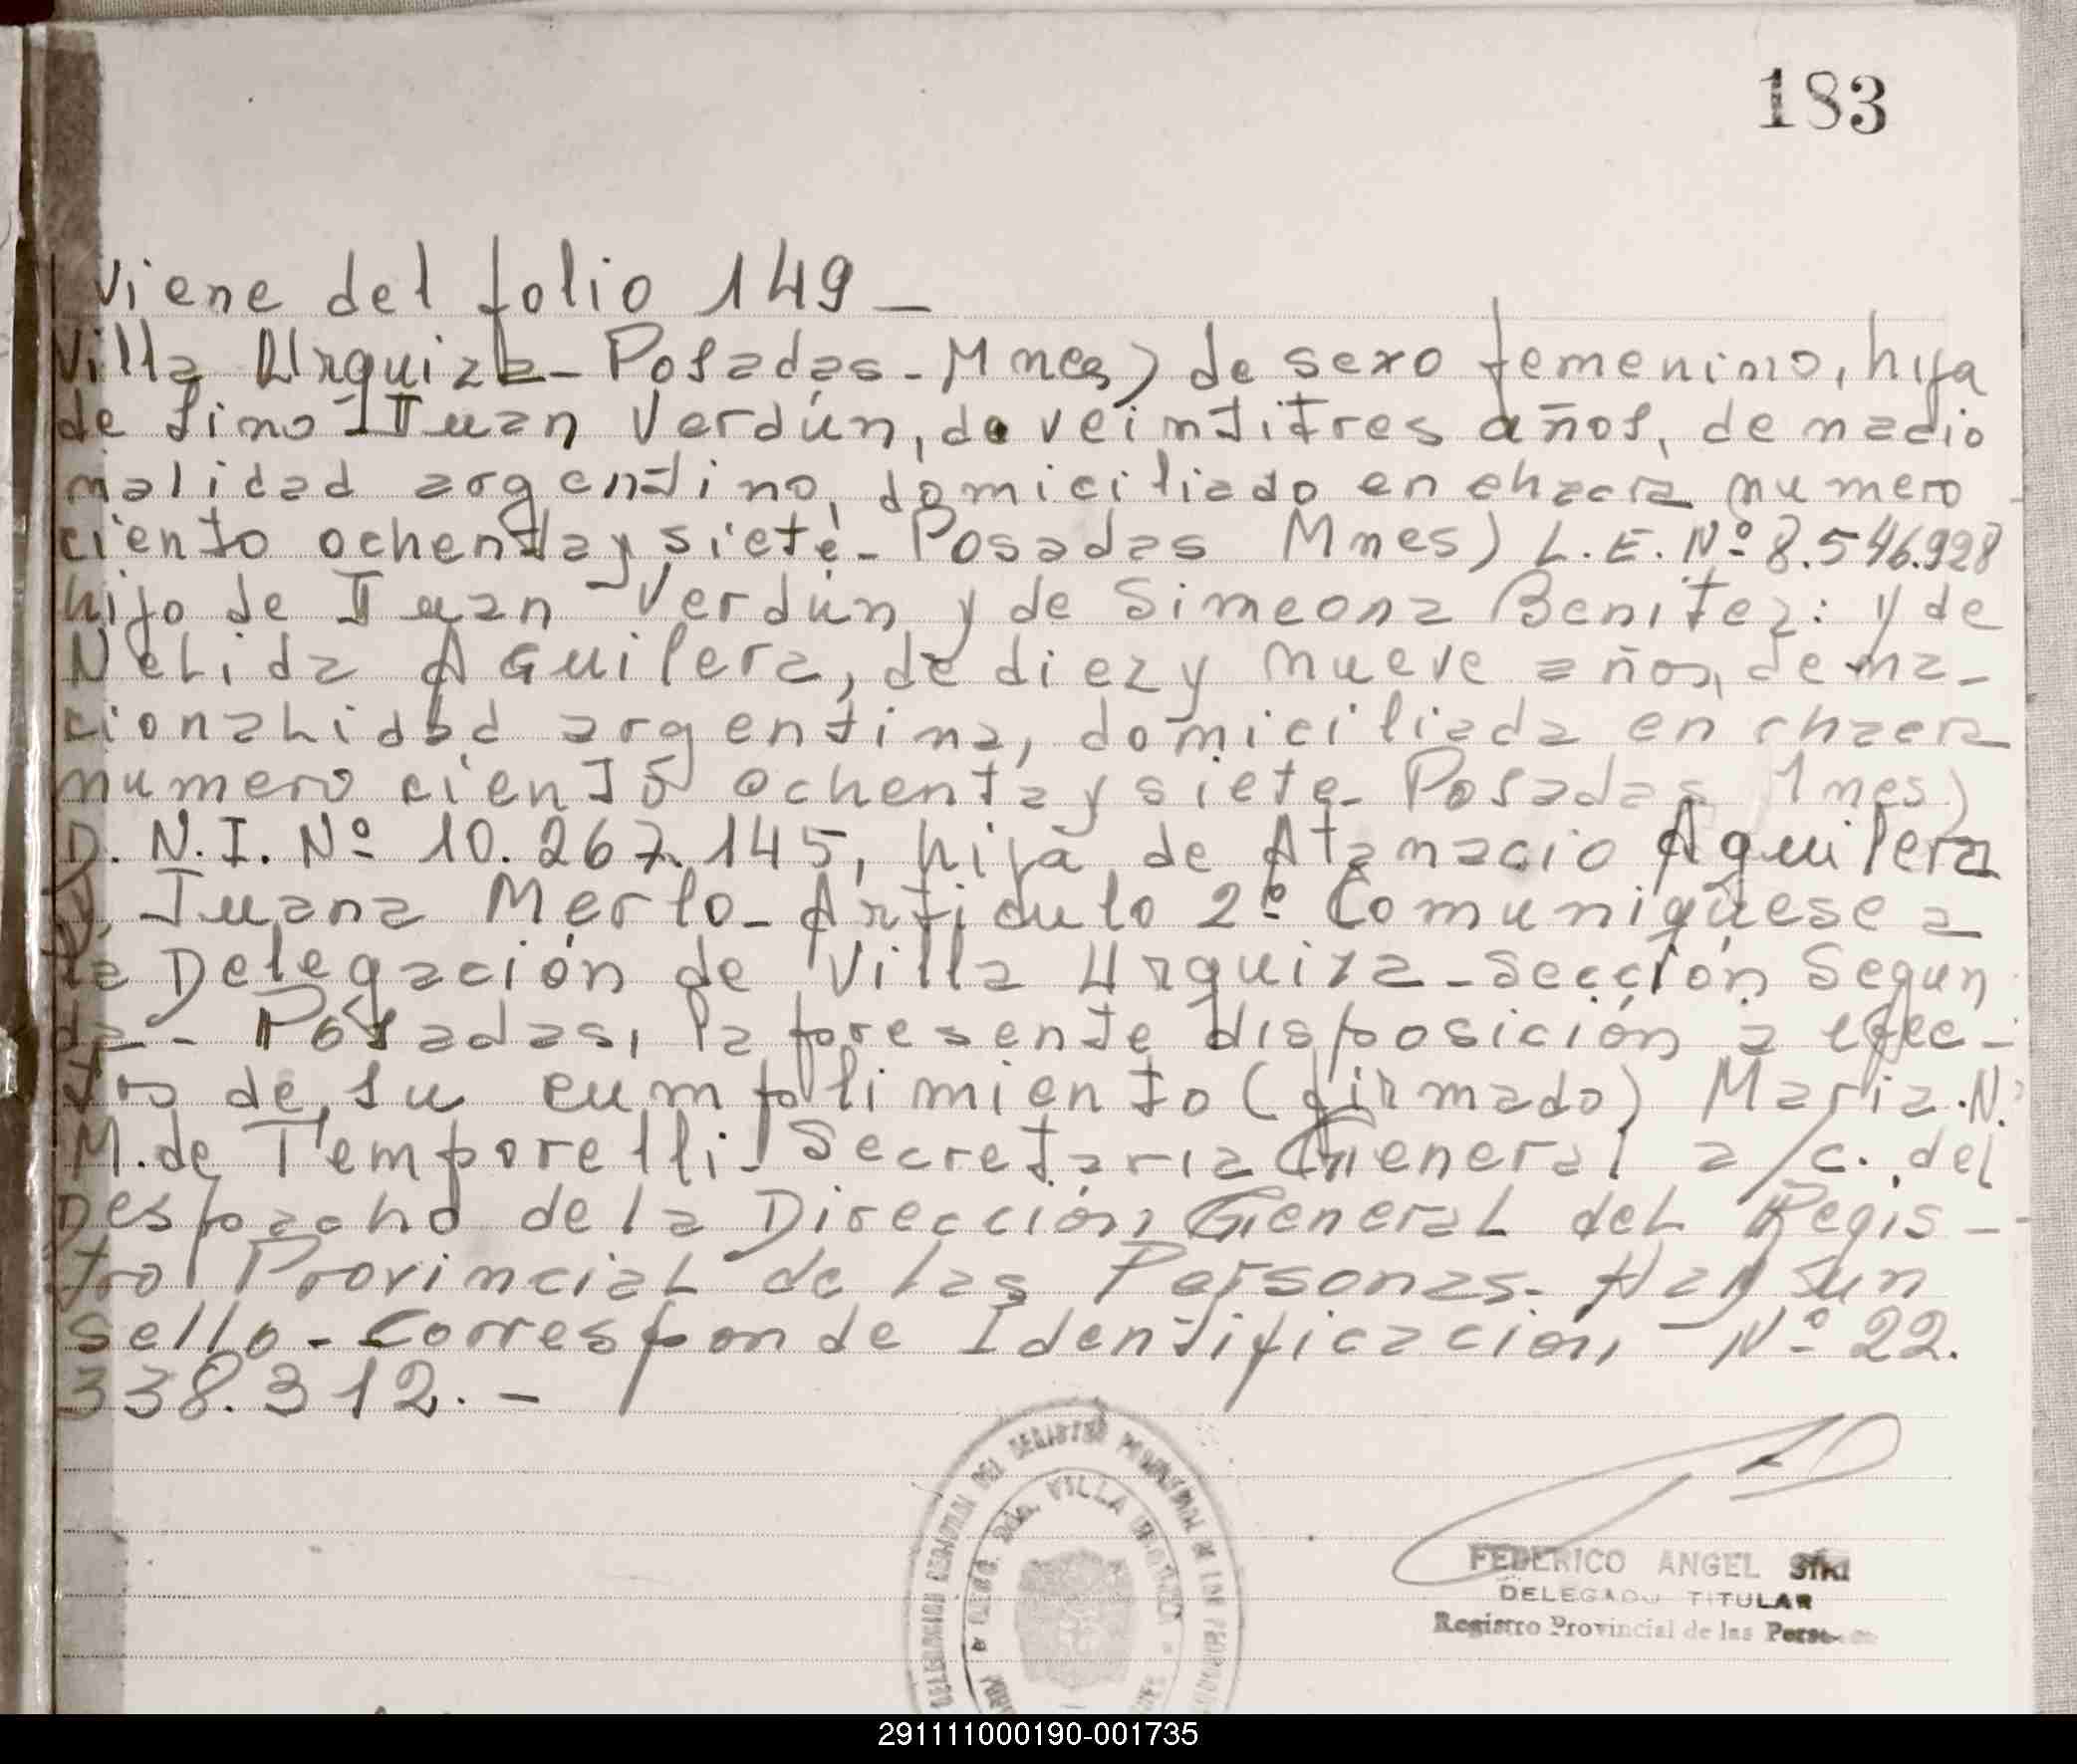 183
Viene del folio 149 -
Villa Urquiza - Posadas - Mnes) de sexo femenino, hija
de Lino Juan Verdún, de veintitres años, de nacio
nalidad argentino, domiciliado en chacra numero
ciento ochenta y siete - Posadas Mnes) L.E. Nº 8.546.928
hijo de Juan Verdún y de Simeona Benitez: y de
Nelida Aguilera, de diez y nueve años, de na-
cionalidad argentina, domiciliada en chacra
numero ciento ochenta y siete - Posadas Mnes)
D.N.I. Nº 10.267.145, hija de Atanacio Aguilera
y Juana Merlo - Articulo 2º Comuniquese a
la Delegación de Villa Urquiza - Sección Segun
da - Posadas, la presente disposición a efec-
tos de su cumplimiento (firmado) Maria. N.
M. de Temporelli - Secretaria General a/c. del
Despacho de la Dirección General del Regis-
tro Provincial de las Personas. Hay un
Sello - Corresponde Identificación Nº 22.
338.312. -
VILLA
FEDERICO ANGEL
DELEGADO TITULAR
Registro Provincial de las
291111000190-001735